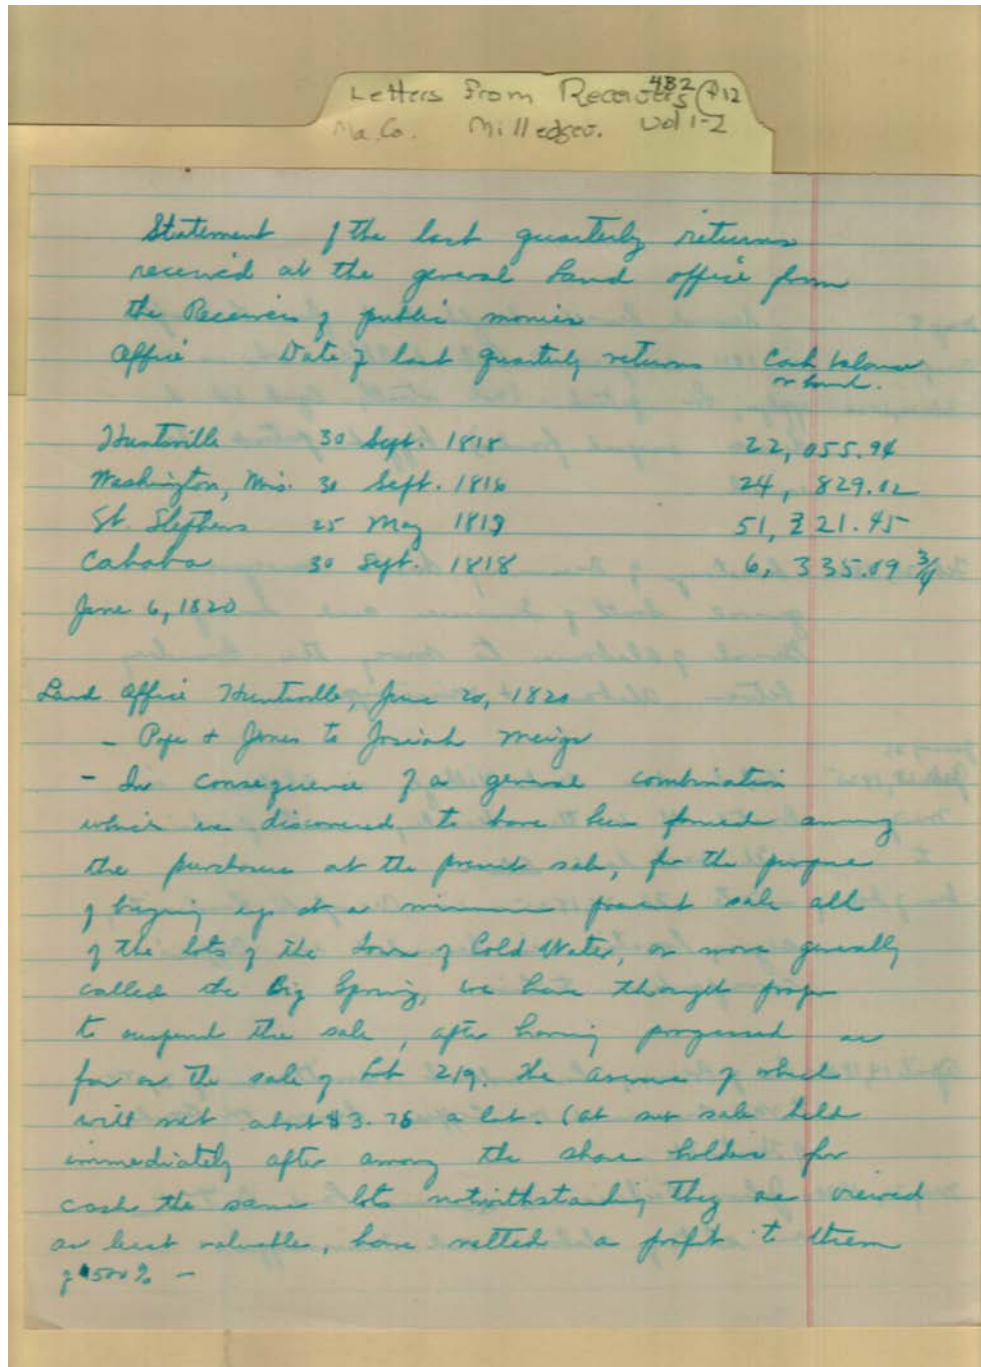 Letters From Receivers 4B2 P12
Ma. Co. Milledgev. Vol 1-2
Statement of the last quarterly returns
received at the general Land office from
the Receivers of public monies
Office Date of last quarterly returns Cash balance
on hand.
Huntsville 30 Sept. 1818 22,055.94
Washington, Mis. 30 Sept. 1818 24, 829.02
St. Stephens 25 May 1819 51, 21.45
Cahaba 30 Sept. 1818 6, 335.09 3/4
June 6, 1820
Land Office Huntsville, June 20, 1820
- Pope & Jones to Josiah Meigs
- In consequence of a general combination
which we discovered, to have been formed among
the purchasers at the present sale, for the purpose
of buying up at a minimum present sale all
of the lots of the town of Cold Water, or more generally
called the Big Spring, we have thought proper
to suspend the sale, after having progressed as
far as the sale of lot 219. the average of which
will net about $3.75 a lot. (at sale held
immediately after among the share holders for
cash the same lots notwithstanding they are viewed
as least valuable, have netted a profit to them
of 500% -